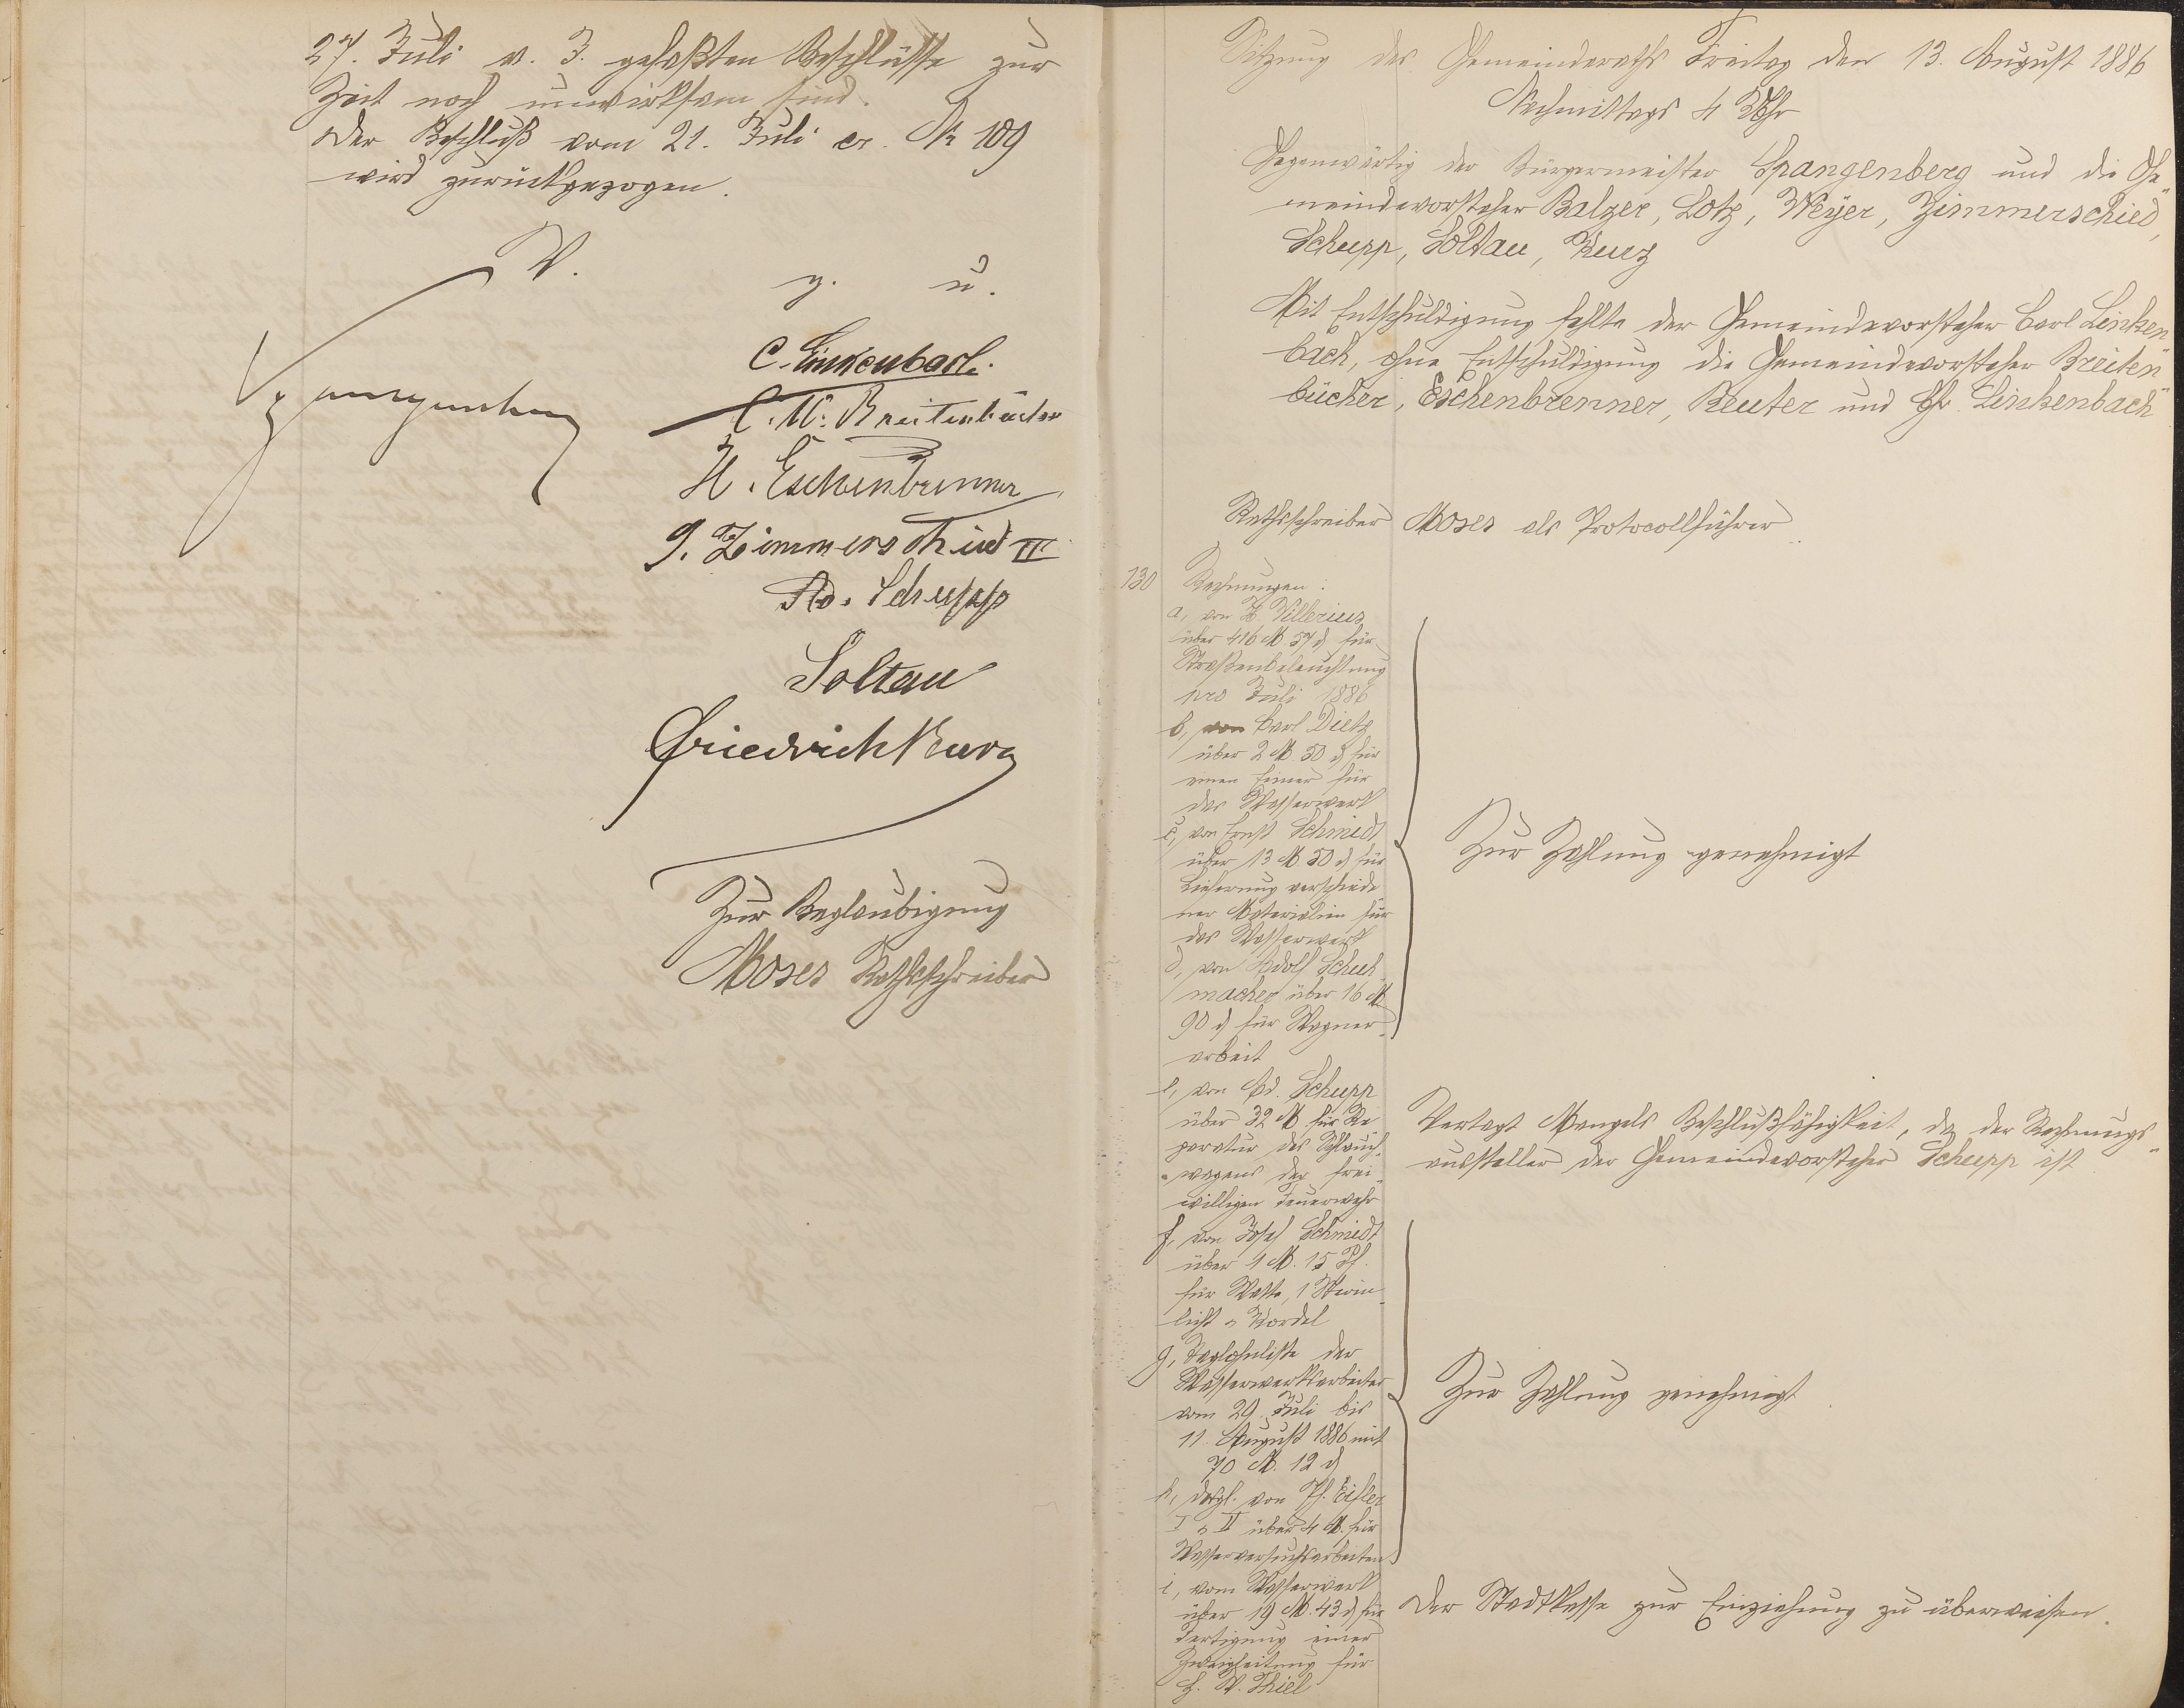 27. Juli v. J. gefaßten Beschlüsse zur
Zeit noch unwirksam sind.
Der Beschluß vom 21. Juli cr. No 109
wird zurückgezogen.
V. g. u.
Spangenberg
C. Linkenbach.
C. W. Breitenbücher
H. Eschenbrenner
J. Zimmerschied III
Ad. Schupp
Soltau
Friedrich Kurz
Zur Beglaubigung
Moses Rathsschreiber
Sitzung des Gemeinderaths Freitag den 13. August 1886
Nachmittags 4 Uhr
Gegenwärtig der Bürgermeister Spangenberg und die Ge„
meindevorsteher Balzer, Lotz, Meyer, Zimmerschied,
Schupp, Soltau, Kurz
Mit Entschuldigung fehlte der Gemeindevorsteher Carl Linken
bach, ohne Entschuldigung die Gemeindevorsteher Breiten„
bücher, Eschenbrenner, Reuter und Chr. Linkenbach
Rathsschreiber Moses als Protocollführer
130 Rechnungen:
a, von H. Villerius
über 416 M 57 d für
Straßenbeleuchtung
pro Juli 1886
b, von Carl Dietz
über 2 M 50 d für
einen Eimer für
das Wasserwerk
c, von Ernst Schmidt
über 13 M 50 d für
Lieferung verschiede
ner Materialien für
das Wasserwerk
d, von Adolf Schuh
macher über 16 M
90 d für Wagner„
arbeit
Zur Zahlung genehmigt
e, von Ad. Schupp
über 32 M für Re
paratur des Schlauch„
wagens der frei„
willigen Feuerwehr
Vertagt Mangels Beschlußfähigkeit, da der Rechnungs„
aussteller der Gemeindevorsteher Schupp ist
f, von Josef Schmidt
über 4 M. 15 Pf.
für Watte, 1 Stearin
licht u Kordel
g, Taglohnliste der
Wasserwerksarbeiter
vom 29. Juli bis
11. August 1886 mit
70 M. 12 d
h, desgl. von Ph. Eisler
I u II über 4 M. für
Wasserversuchsarbeiten
Zur Zahlung genehmigt
i, vom Wasserwerk
über 19 M. 43 d für
Fertigung einer
Zweigleitung für
H. W. Thiel
Der Stadtkasse zur Einziehung zu überweisen.